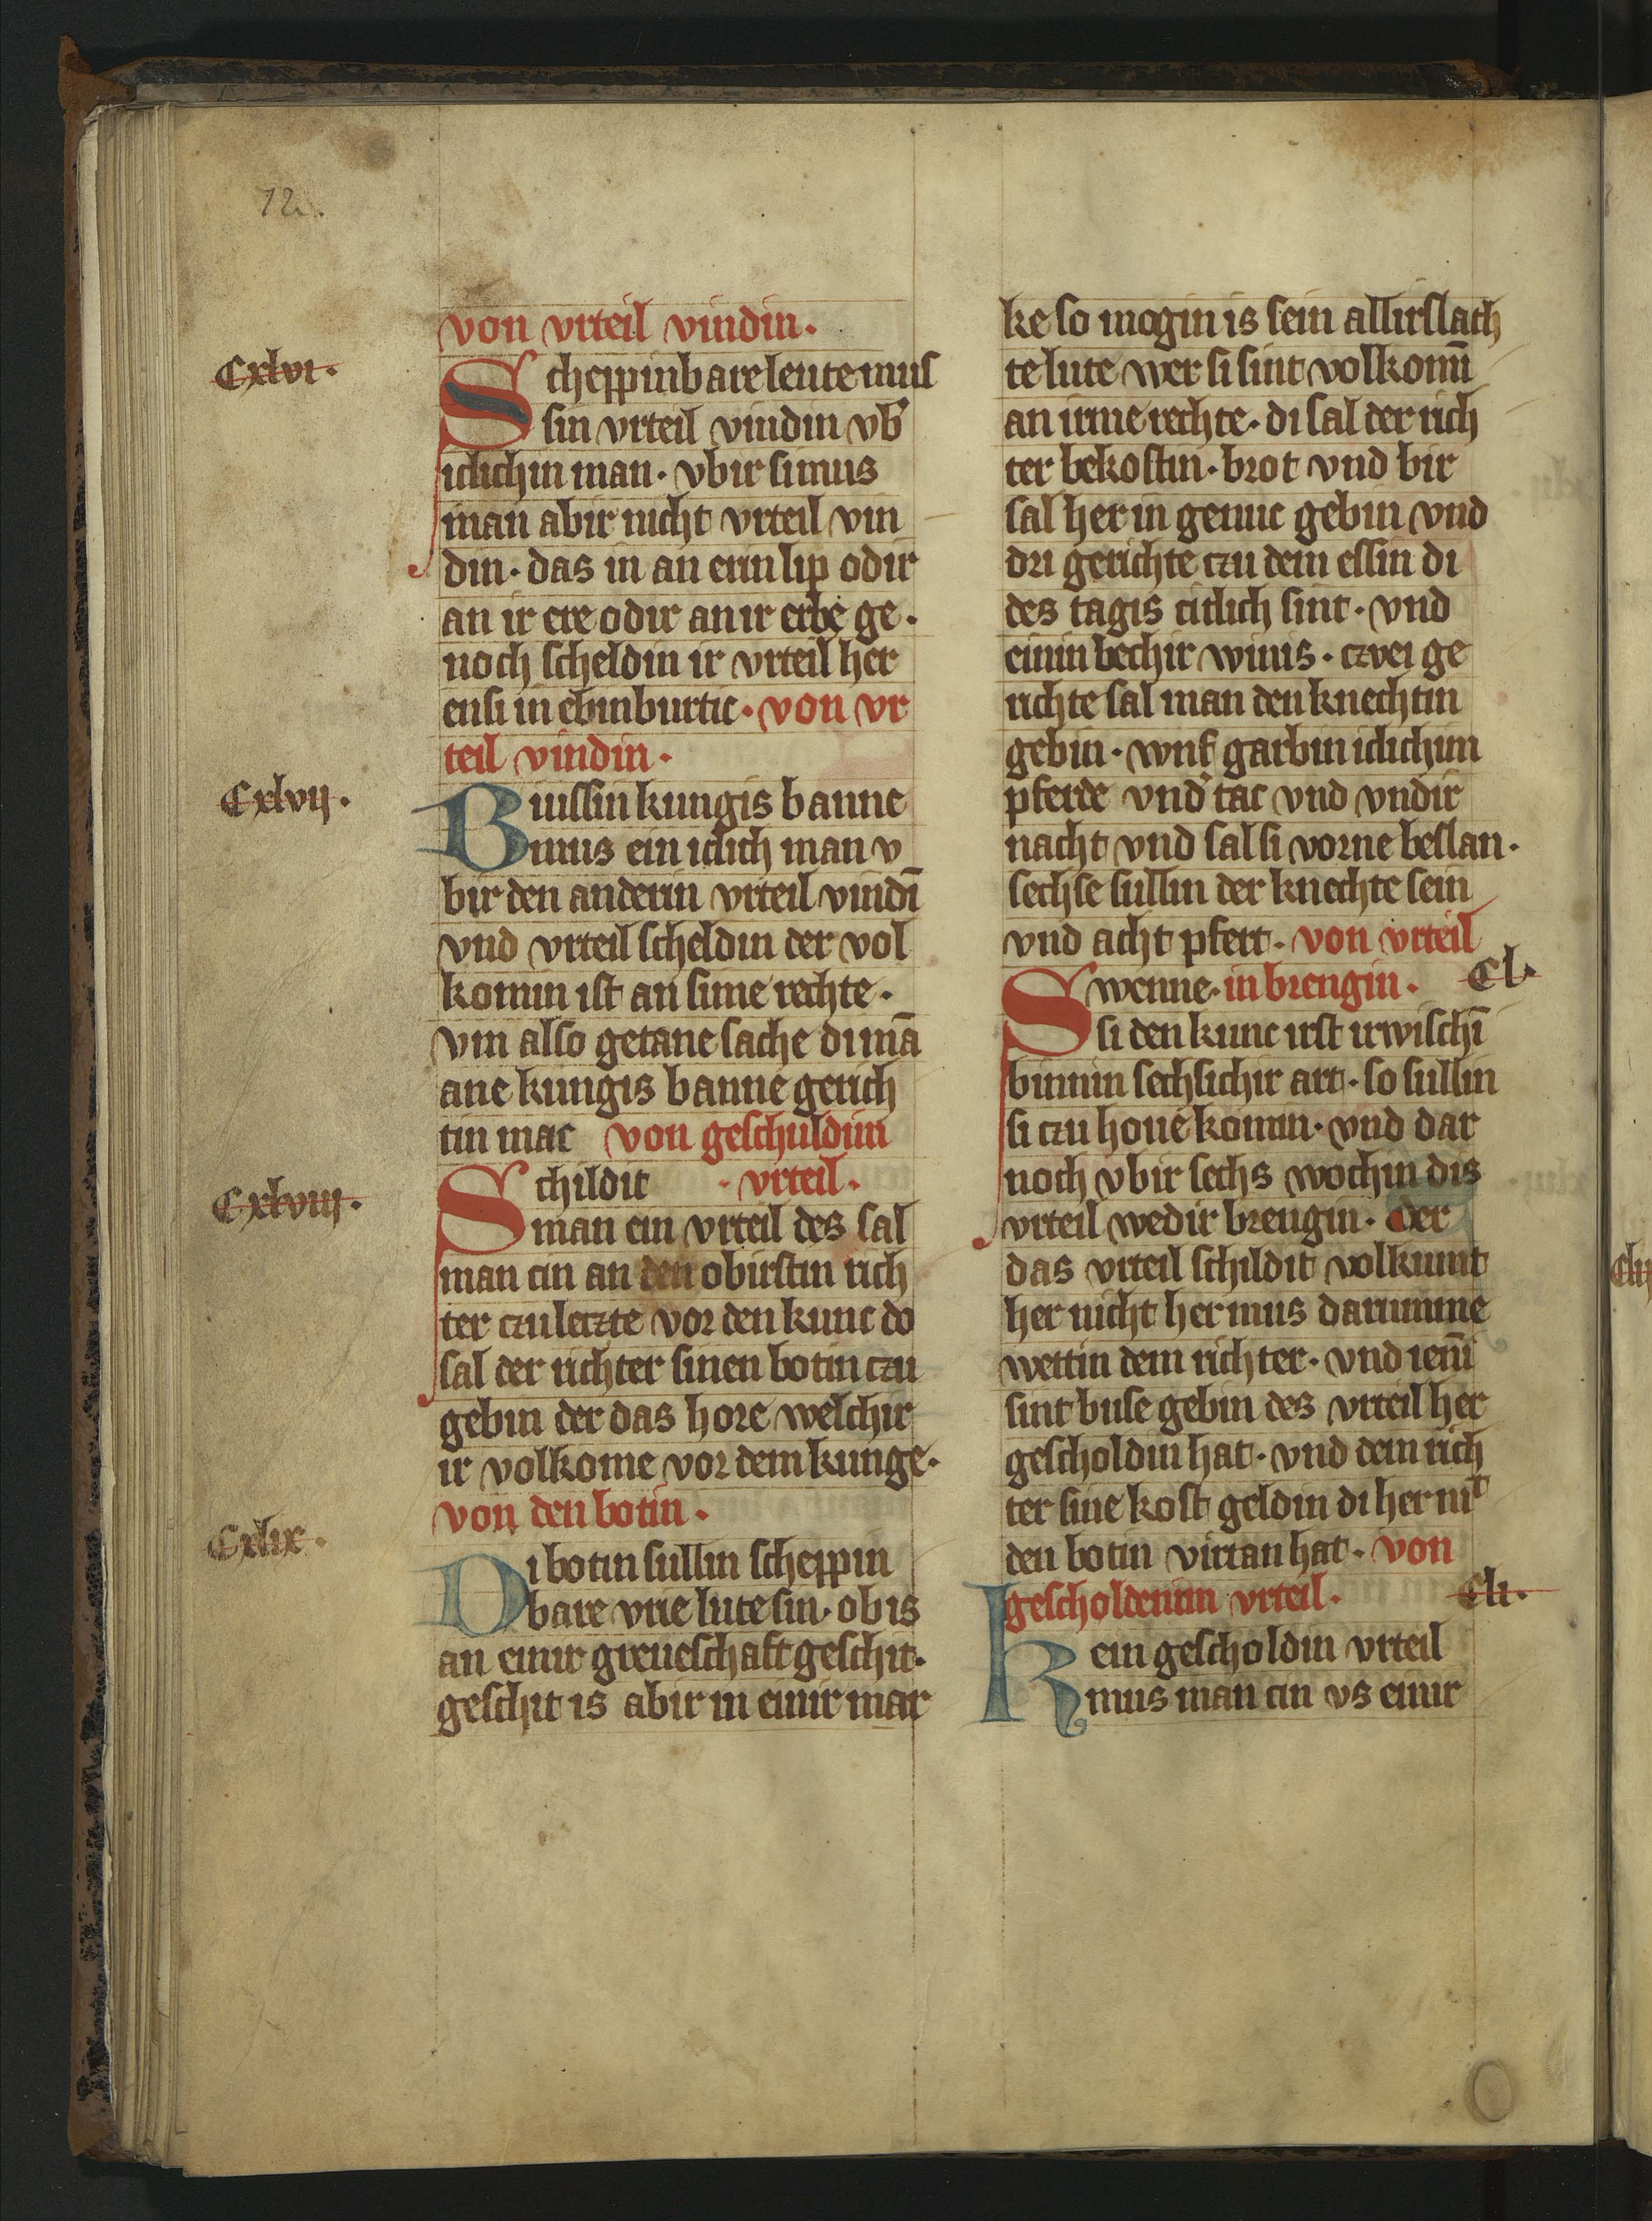 12.
von vrteil vindin.
Cxlvi.
Scheppinbare leute mus
sin vrteil vindin vb'
iclichin man. vbir si mus
man abir nicht vrteil vin
din. das in an erin lip odir
an ir ere odir an ir erbe ge.
noch scheldin ir vrteil her
ensi in ebinburtic. von vr
teil vindin.
Cxlvij.
Binissin kungis banne
mus ein iclich man v
bir den anderin vrteil vindī
vnd vrteil scheldin der vol
komin ist an sime rechte.
vm also getane sache di mā
ane kungis banne gerich
tin mac von geschuldim
Cxlviij.
Schildit . vrteil.
man ein vrteil des sal
man cin an den obirstin rich
ter czu leczte vor den kunc do
sal der richter sinen botin czu
gebin der das hore welchir
ir volkome vor dem kunge.
von den botin.
Cxlix.
Di botin sullin scheppin
bare vrie lute sin. ob is
an einir greueschaft geschit.
geschit is abir in einir mar
ke so mogin is sein allirslach
te lute wer si sint volkomī
an irme rechte. di sal der rich
ter bekostin. brot vnd bir
sal her in genuc gebin vnd
dri gerichte czu dem essin di
des tagis citlich sint. vnd
einin bechir winis. czwei ge
richte sal man den knechtin
gebin. wnf garbin iclichim
pferde vnd' tac vnd vndir
nacht vnd sal si vorne beslan.
sechse sullin der knechte sein
vnd acht pfert. von vrteil
Swenne. in brengin. Cl.
si den kunc irst irwischī
binnin sechsichir art. so sullin
si czu houe komin. vnd dar
noch vbir sechs wochin dis
vrteil wedir brengin. der
das vrteil schildit volkumt
her nicht her mus darumme
wettin dem richter. vnd iemī
sint buse gebin des vrteil her
gescholdin hat. vnd dem rich
ter sine kost geldin di her mit
den botin virtan hat. von
gescholdenim vrteil. Cli.
Kein gescholdin vrteil
mus man cin vs einir